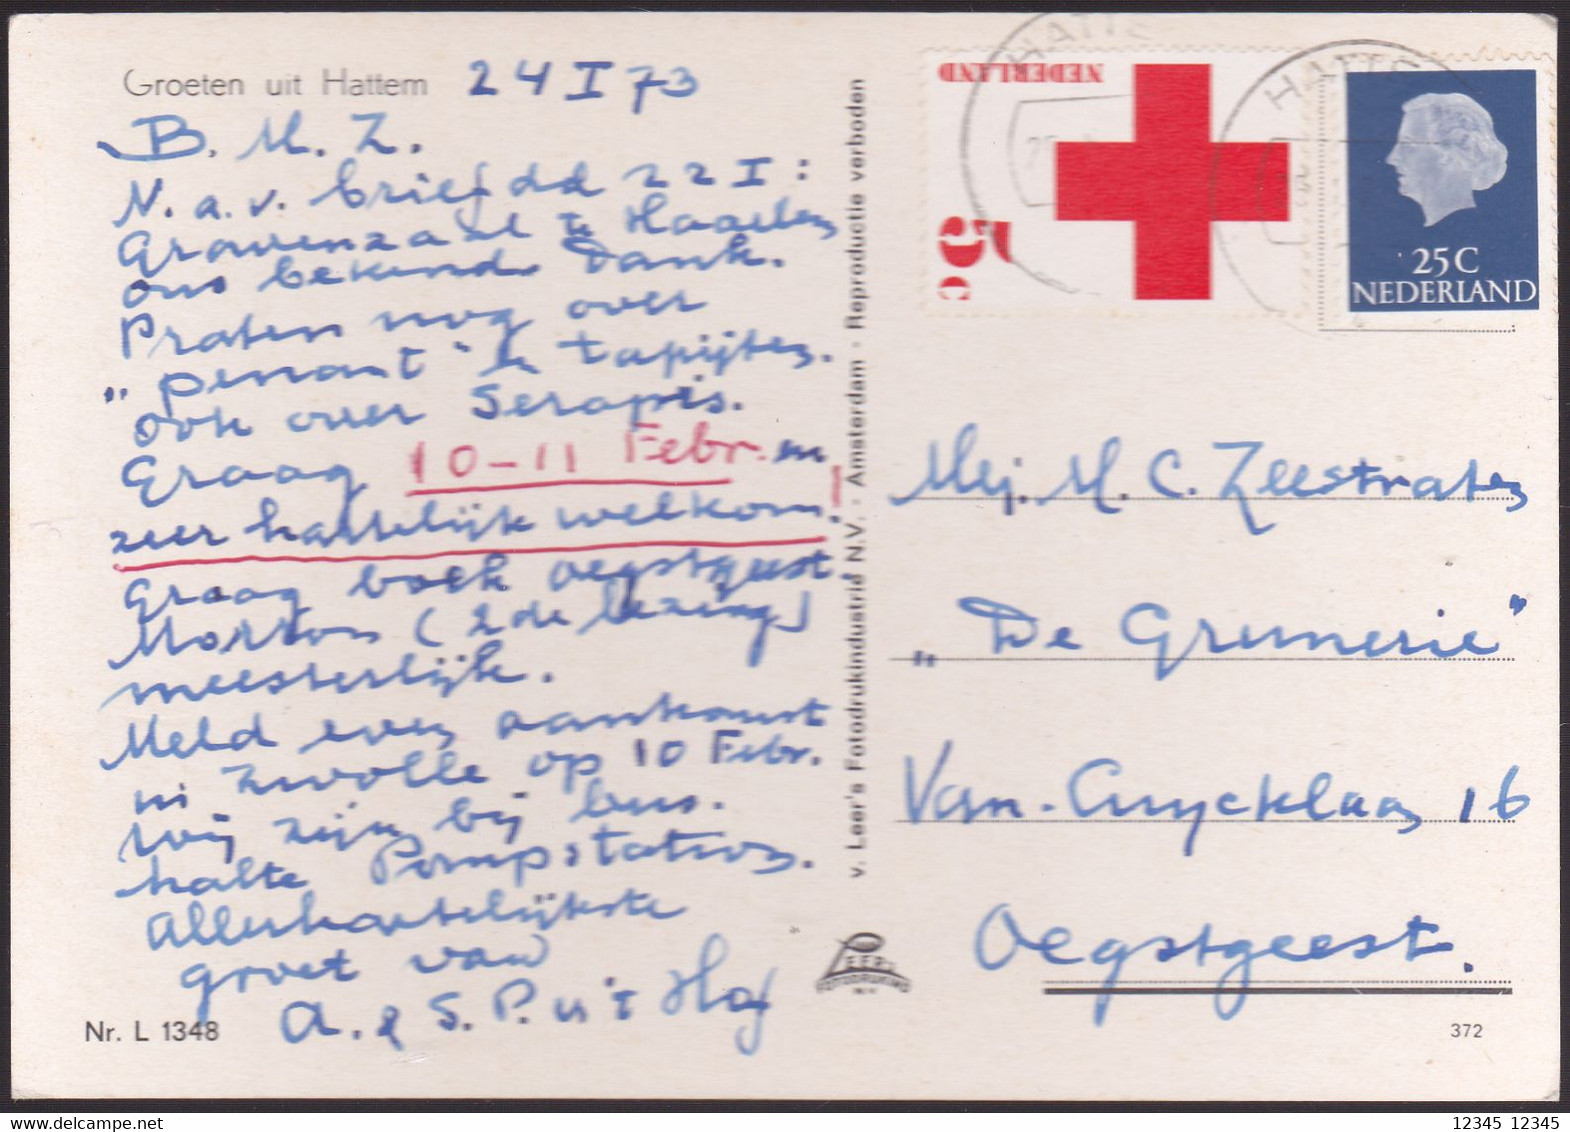 Groeten uit Hattem 24 I 73
B. M. Z.
N.a.v. brief dd 22 I:
Gravenzaal te Haarlem
ons bekend. Dank.
Praten nog over
"penant" en tapijten.
ook over Serapis.
Graag 10-11 Febr. en
zeer hartelijk welkom!
Graag boek Oegstgeest.
(2de lezing)
meesterlijk.
Meld even aankomst
in Zwolle op 10 Febr.
Wij zijn bij bus-
halte Pompstation.
Allerhartelijkste
groet van
A. & S. P. u 't Hof
Nr. L 1348
v. Leer's Fotodrukindustrie N.V. · Amsterdam · Reproductie verboden
LEER'S
FOTODRUKIND
N.V.
NEDERLAND
5c
HATTE
HATTE
25 C
NEDERLAND
Mej. M. C. Zeestraten
"De Grunerie"
Van Cuycklaan 16
Oegstgeest.
372
12345 12345